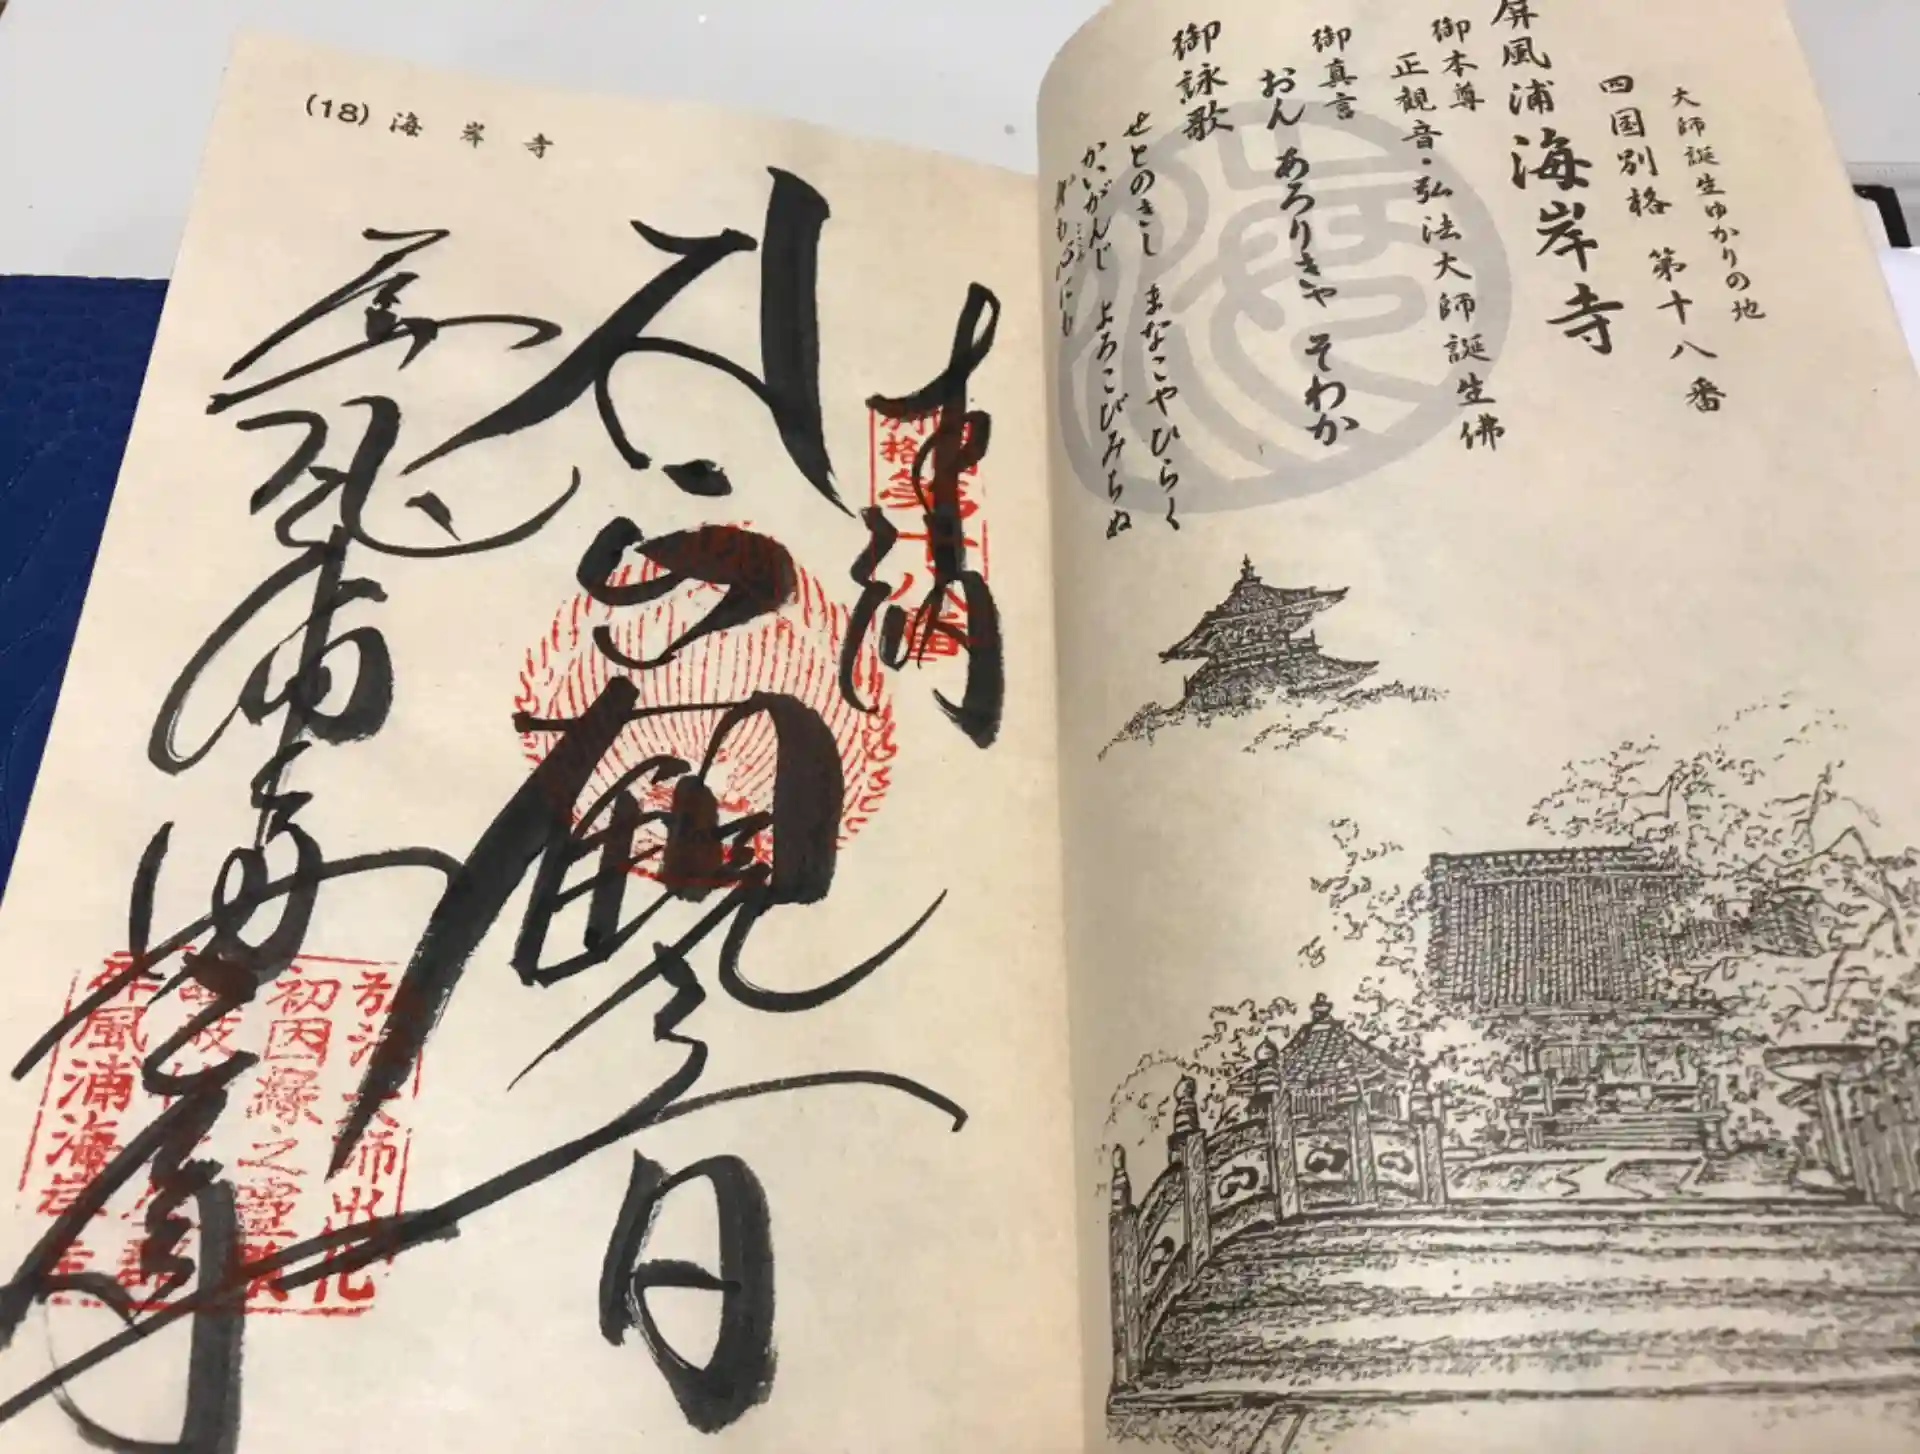 大師誕生ゆかりの地
四国別格 第十八番
屏風浦 海岸寺
御本尊
正観音・弘法大師誕生佛
御真言
おん あろりきゃ そわか
御詠歌
せとのきし まなこやひらく
かいがんじ よろこびみちぬ
(18) 海岸寺
奉納
別格
第十八番
観音
屏風浦海岸寺
弘法大師出化
初因縁之霊跡
屏風浦海岸寺